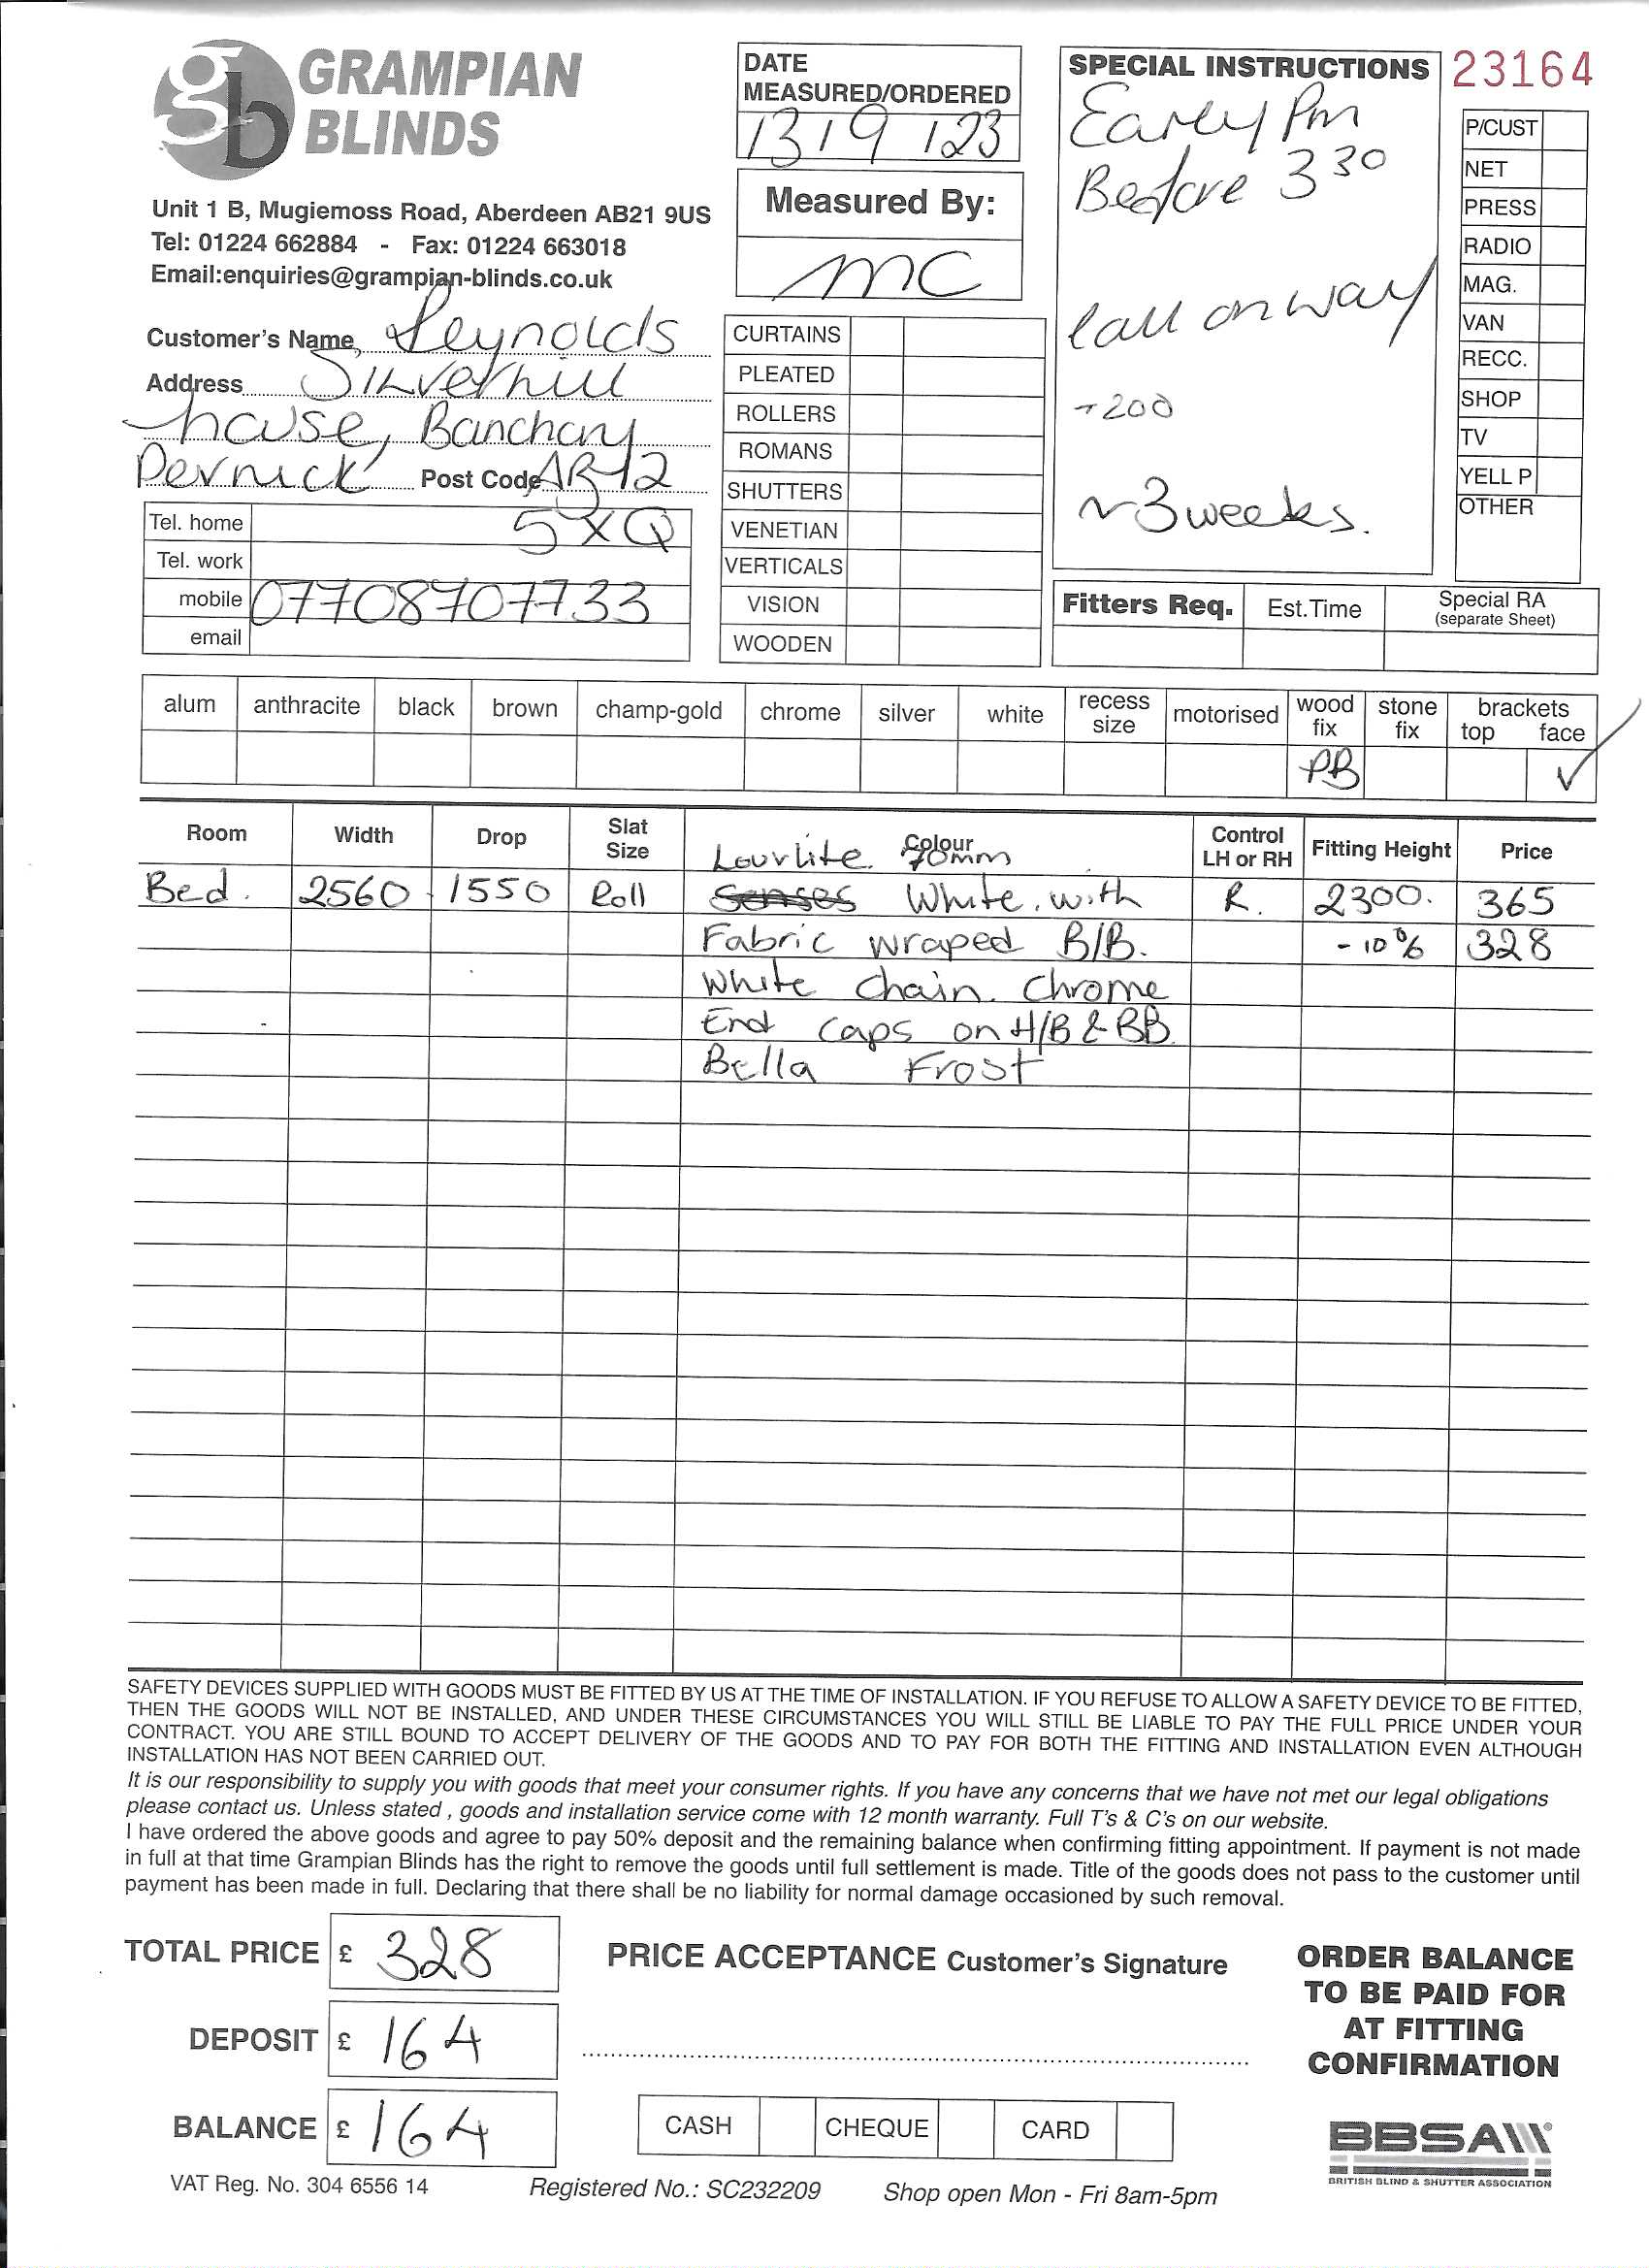 GRAMPIAN
BLINDS
Unit 1 B, Mugiemoss Road, Aberdeen AB21 9US
Tel: 01224 662884 - Fax: 01224 663018
Email:enquiries@grampian-blinds.co.uk
DATE
MEASURED/ORDERED
13/9/23
Measured By:
MC
SPECIAL INSTRUCTIONS
Early Pm
Before 3 30
Call on way
200
~ 3 weeks.
23164
P/CUST
NET
PRESS
RADIO
MAG.
VAN
RECC.
SHOP
TV
YELL P
OTHER
Customer's Name Reynolds
Address Silverhill
house, Banchory
Dernick Post Code AB12
5XQ
Tel. home
Tel. work
mobile 07708707733
email
CURTAINS
PLEATED
ROLLERS
ROMANS
SHUTTERS
VENETIAN
VERTICALS
VISION
WOODEN
Fitters Req. Est.Time Special RA
(separate Sheet)
alum anthracite black brown champ-gold chrome silver white recess size motorised wood fix stone fix brackets top face
PB ✓
Room Width Drop Slat Size Colour Control LH or RH Fitting Height Price
Louvlite 70mm
Bed. 2560 1550 Roll Senses White with R. 2300. 365
Fabric wraped B/B. -10% 328
White chain. Chrome
End caps on H/B & BB
Bella Frost
SAFETY DEVICES SUPPLIED WITH GOODS MUST BE FITTED BY US AT THE TIME OF INSTALLATION. IF YOU REFUSE TO ALLOW A SAFETY DEVICE TO BE FITTED,
THEN THE GOODS WILL NOT BE INSTALLED, AND UNDER THESE CIRCUMSTANCES YOU WILL STILL BE LIABLE TO PAY THE FULL PRICE UNDER YOUR
CONTRACT. YOU ARE STILL BOUND TO ACCEPT DELIVERY OF THE GOODS AND TO PAY FOR BOTH THE FITTING AND INSTALLATION EVEN ALTHOUGH
INSTALLATION HAS NOT BEEN CARRIED OUT.
It is our responsibility to supply you with goods that meet your consumer rights. If you have any concerns that we have not met our legal obligations
please contact us. Unless stated , goods and installation service come with 12 month warranty. Full T's & C's on our website.
I have ordered the above goods and agree to pay 50% deposit and the remaining balance when confirming fitting appointment. If payment is not made
in full at that time Grampian Blinds has the right to remove the goods until full settlement is made. Title of the goods does not pass to the customer until
payment has been made in full. Declaring that there shall be no liability for normal damage occasioned by such removal.
TOTAL PRICE £ 328
DEPOSIT £ 164
BALANCE £ 164
PRICE ACCEPTANCE Customer's Signature
CASH CHEQUE CARD
ORDER BALANCE
TO BE PAID FOR
AT FITTING
CONFIRMATION
BBSA
BRITISH BLIND & SHUTTER ASSOCIATION
VAT Reg. No. 304 6556 14 Registered No.: SC232209 Shop open Mon - Fri 8am-5pm